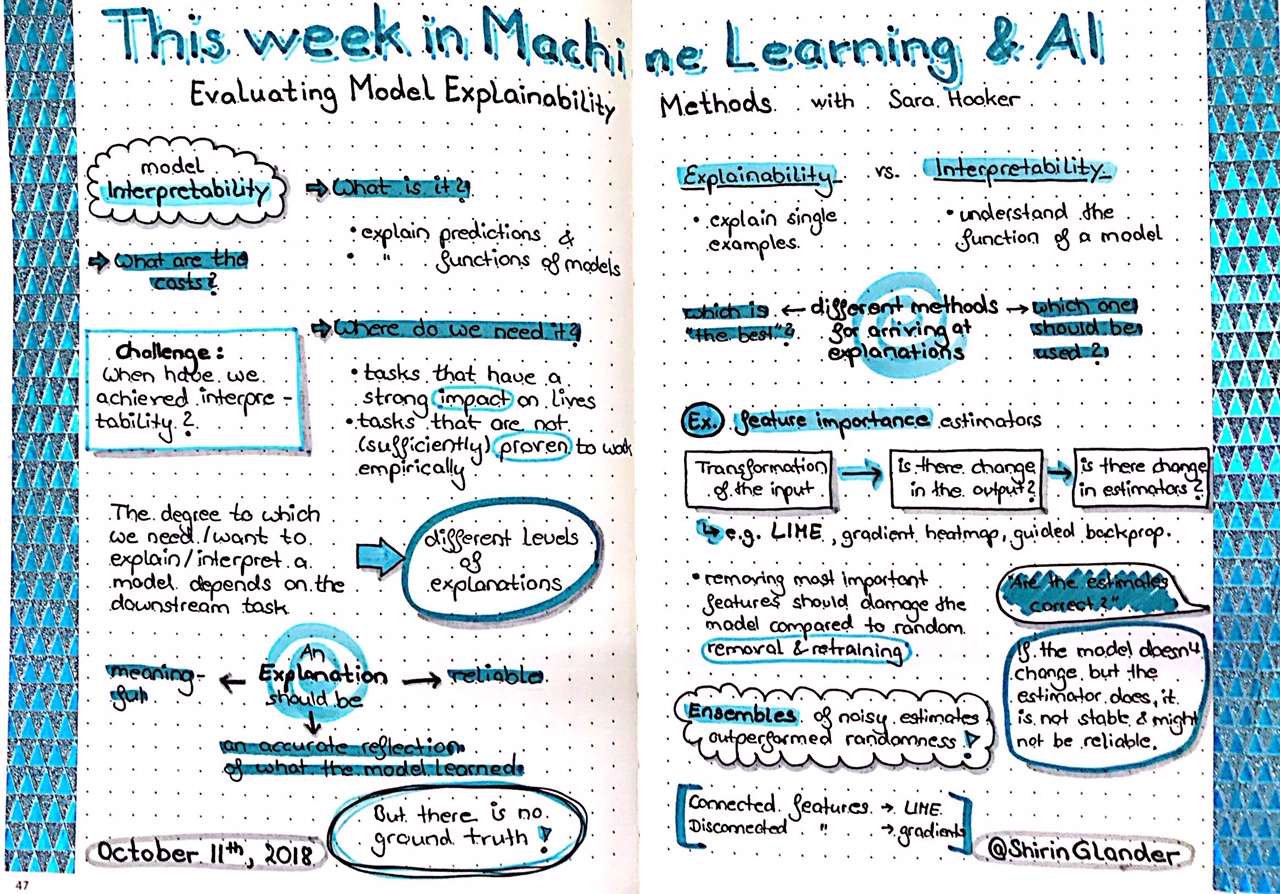 This week in Machine Learning & AI
Evaluating Model Explainability Methods with Sara Hooker
model
Interpretability
⇒ What is it?
• explain predictions &
• " functions of models
⇒ What are the
costs?
⇒ Where do we need it?
• tasks that have a
strong impact on lives
• tasks that are not
(sufficiently) proven to work
empirically
Challenge:
When have we
achieved interpre-
tability?
The degree to which
we need/want to
explain/interpret a
model depends on the
downstream task
different levels
of
explanations
An
Explanation
should be
meaning-
full
reliable
an accurate reflection
of what the model learned
But there is no
ground truth!
October 11th, 2018
47
Explainability vs. Interpretability
• explain single
examples
• understand the
function of a model
which is
"the best"?
← different methods →
for arriving at
explanations
which one
should be
used?
Ex. feature importance estimators
Transformation
of the input
→
is there change
in the output?
→
is there change
in estimators?
↳ e.g. LIME, gradient heatmap, guided backprop.
• removing most important
features should damage the
model compared to random
removal & retraining
"Are the estimates
correct?"
If the model doesn't
change but the
estimator does, it
is not stable & might
not be reliable.
Ensembles of noisy estimates
outperformed randomness!
Connected features → LIME
Disconnected " → gradients
@ShirinGlander